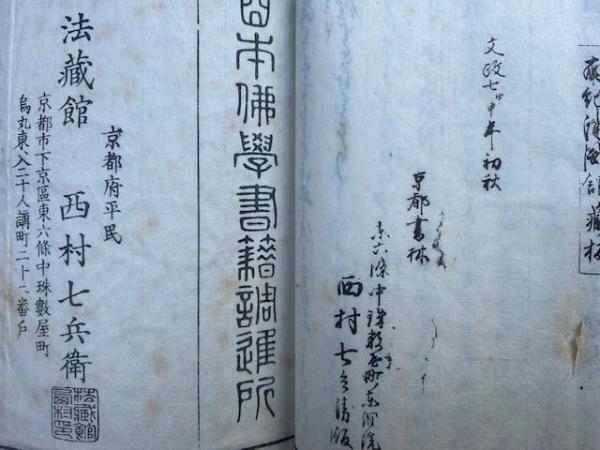 館藏板
文政七甲申年初秋
京都書林
東六條中珠數屋町東洞院
西村七兵衛版
日本佛學書籍調進所
京都府平民
法藏館 西村七兵衛
京都市下京區東六條中珠數屋町
烏丸東入二十人講町二十二番戶
法藏館
西村印